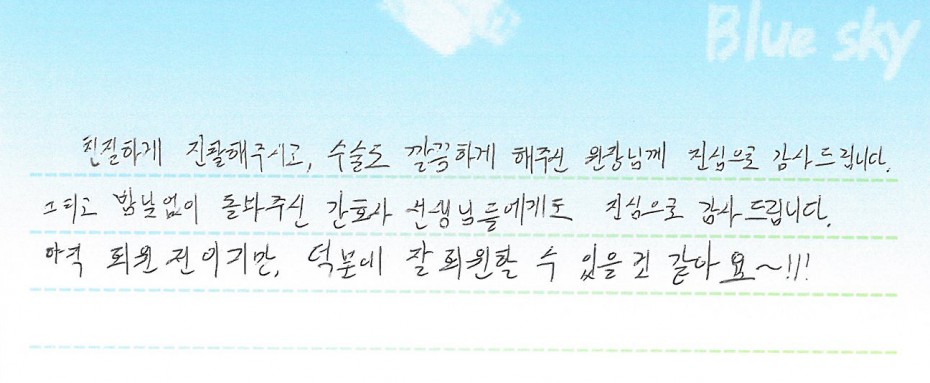 Blue sky
친절하게 진찰해주시고, 수술도 깔끔하게 해주신 원장님께 진심으로 감사드립니다.
그리고 밤낮없이 돌봐주신 간호사 선생님들에게도 진심으로 감사드립니다.
아직 퇴원 전이지만, 덕분에 잘 퇴원할 수 있을 것 같아요~!!!